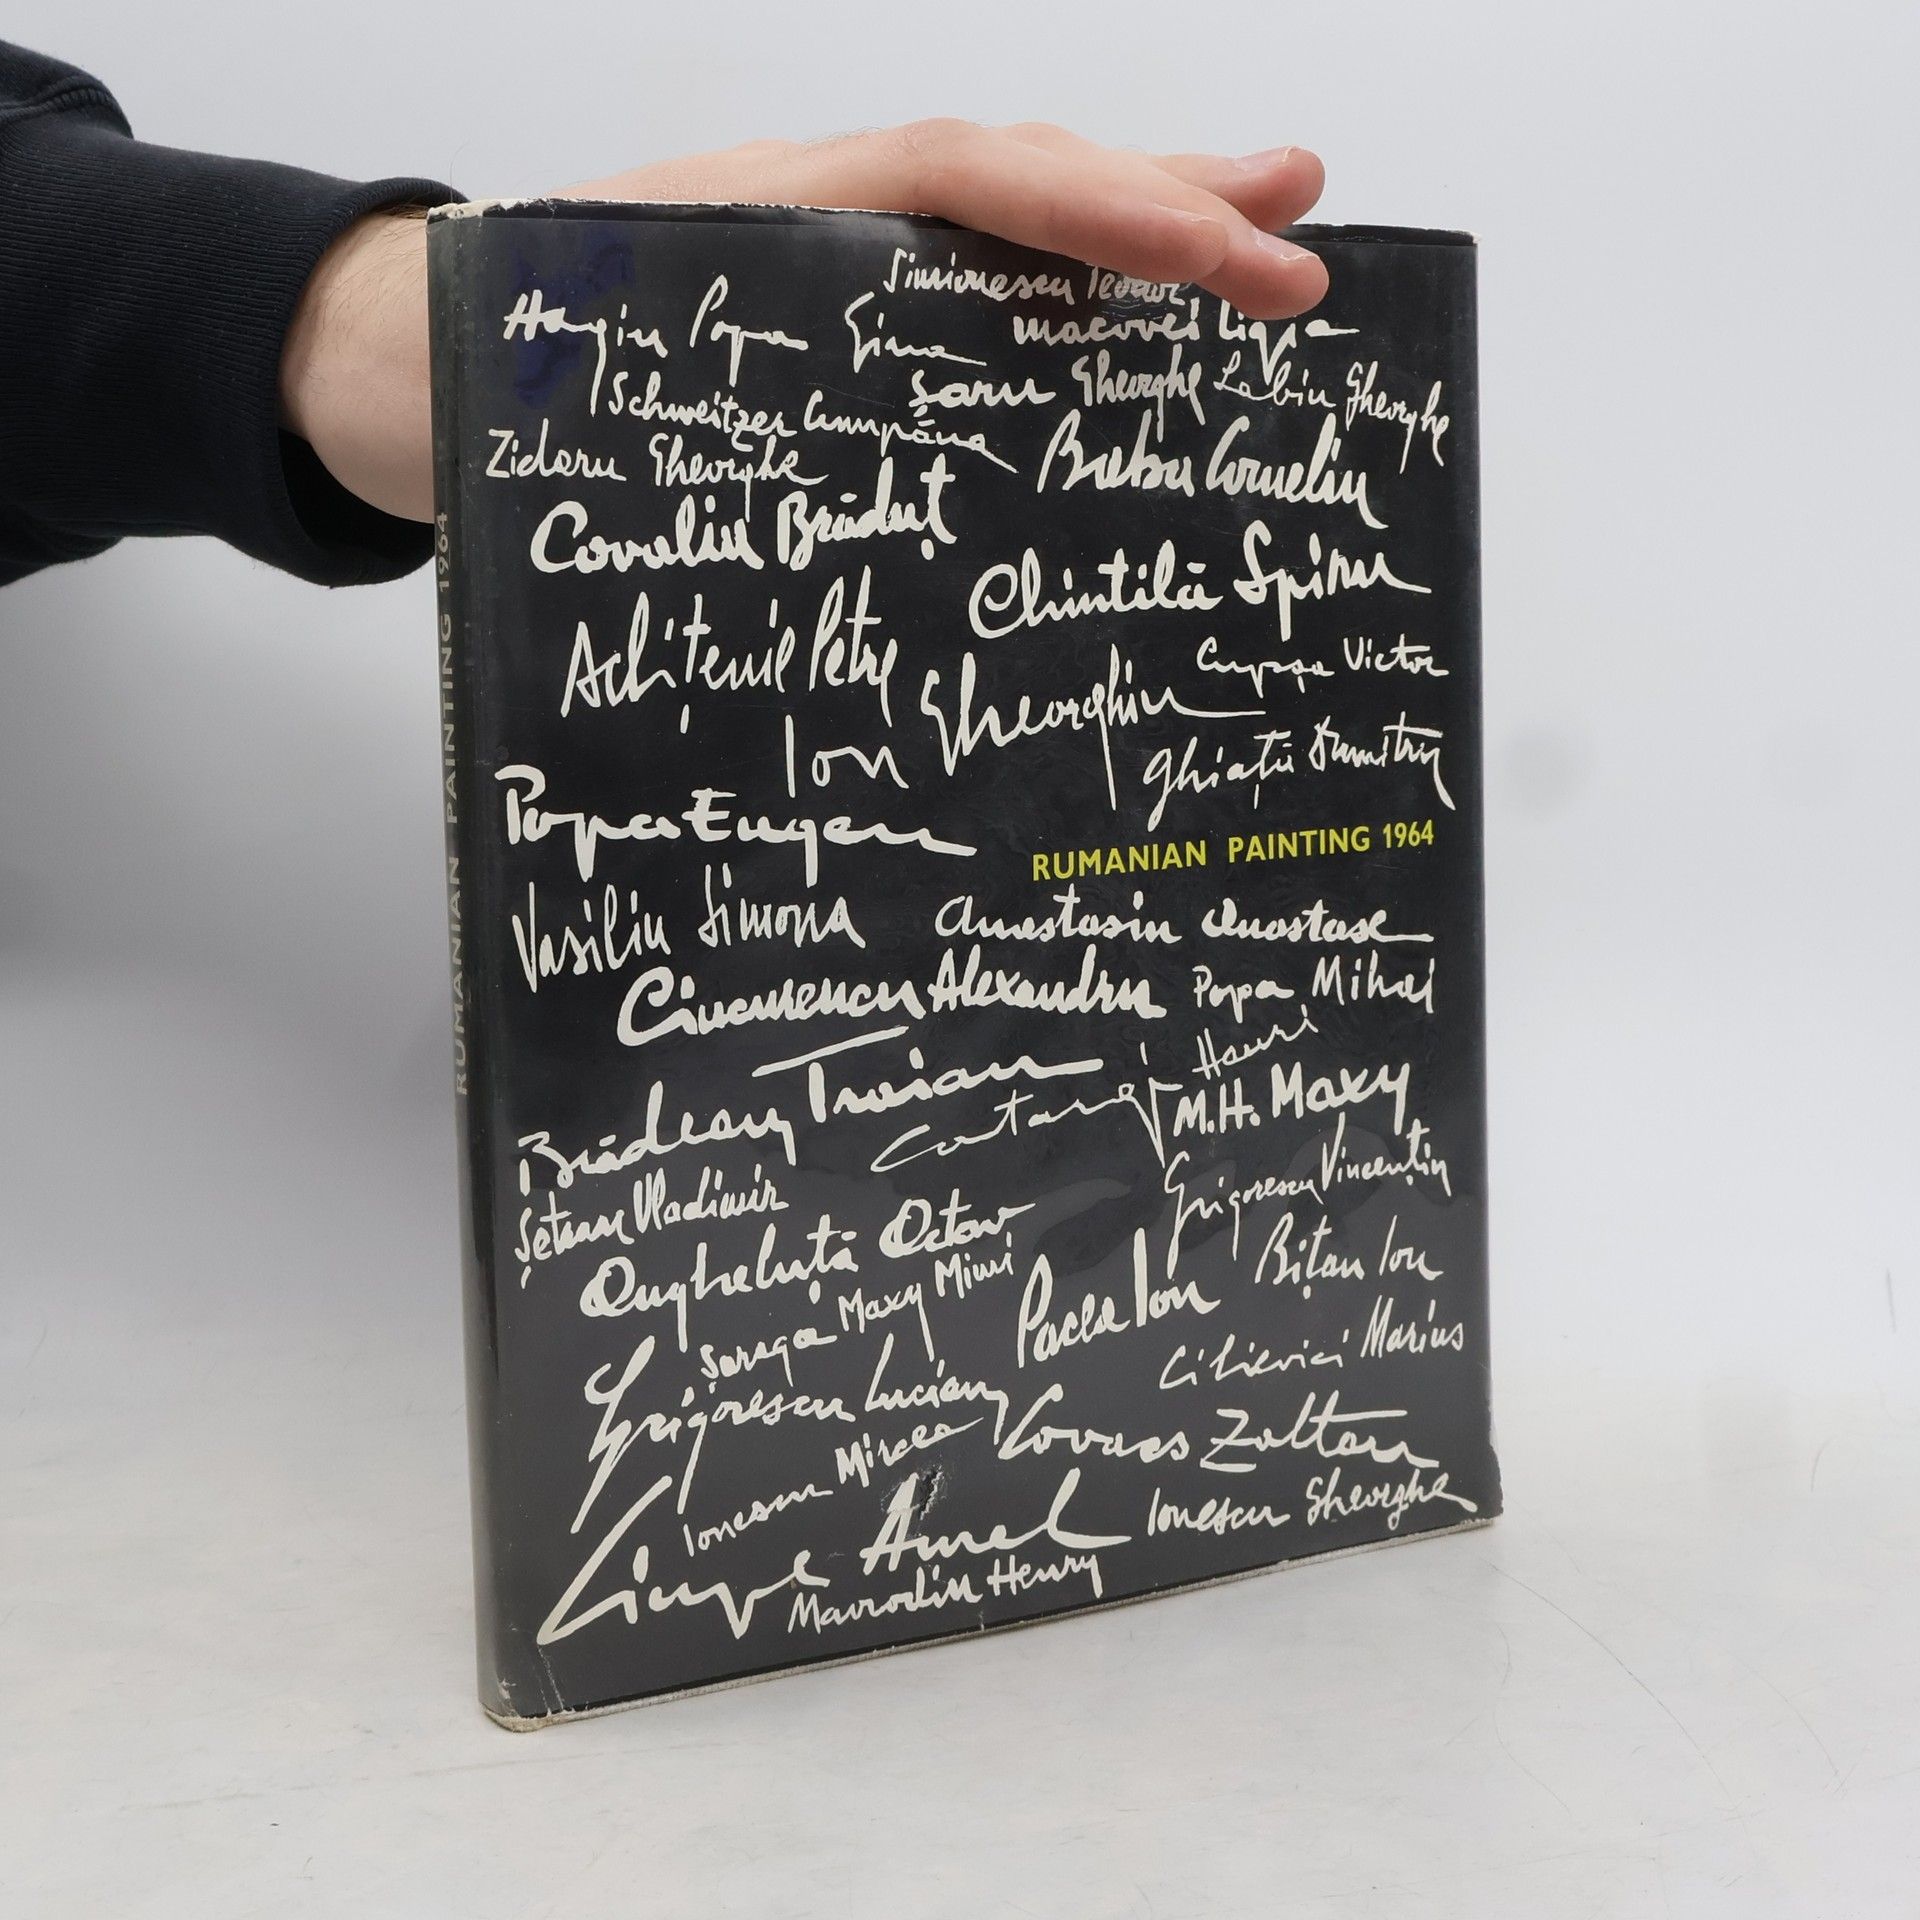 RUMANIAN PAINTING 1964
Simionescu Teodor
Hagiu Popa Gina
Macovei Ligia
Schweitzer Cumpăna
Șaru Gheorghe
Labin Gheorghe
Zidaru Gheorghe
Baba Corneliu
Covaliu Brăduț
Chintilă Spiru
Achițenie Petre
Cupșa Victor
Ion Gheorghiu
Ghiață Dumitru
Popa Eugen
RUMANIAN PAINTING 1964
Vasiliu Simona
Anastasiu Anastase
Ciucurencu Alexandru
Popa Mihai
Brădean Traian
Catargi Henri
M.H. Maxy
Șetran Vladimir
Grigorescu Vincențiu
Angheluță Octav
Bițan Ion
Șaraga Maxy Mimi
Pacea Ion
Cilievici Marius
Grigorescu Lucian
Ionescu Mircea
Kovacs Zoltan
Ciupe Aurel
Ionescu Gheorghe
Mavrodin Henry